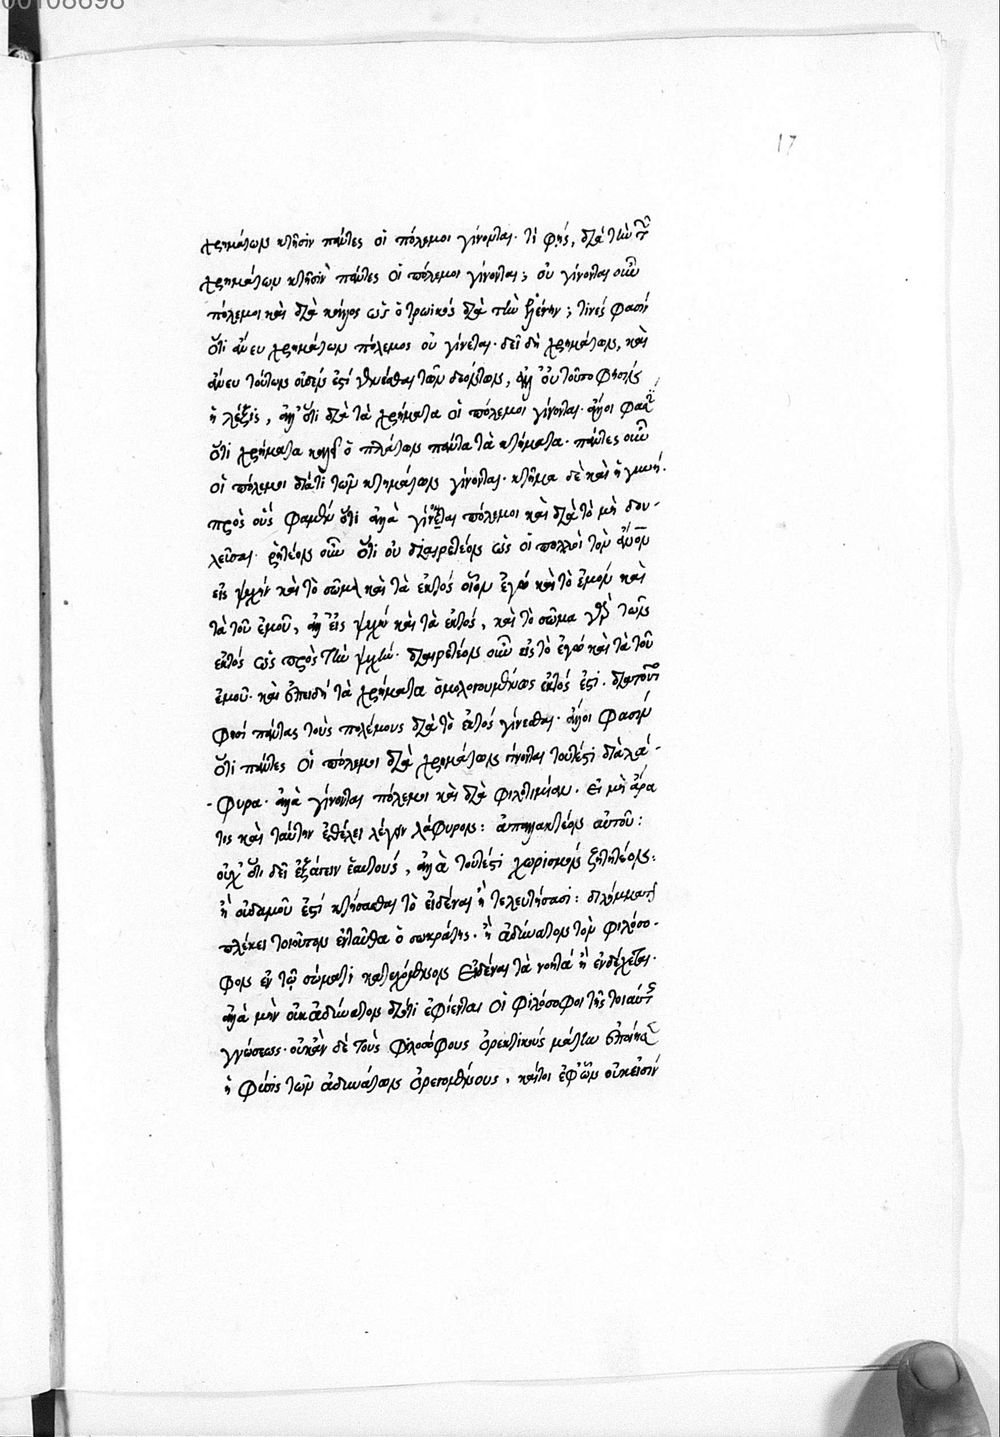 00108698
17
χρημάτων κτῆσιν πάντες οἱ πόλεμοι γίνονται. τί φής, διὰ τὴν τῶν
χρημάτων κτῆσιν πάντες οἱ πόλεμοι γίνονται; οὐ γίνονται οὖν
πόλεμοι καὶ διὰ κάλλος ὡς ὁ τρωικός διὰ τὴν ἑλένην; τινές φασίν
ὅτι ἄνευ χρημάτων πόλεμος οὐ γίνεται. δεῖ δὴ χρημάτων, καὶ
ἄνευ τούτων οὐδέν ἐστί γενέσθαι τῶν δεόντων, ἀλλ' οὐ τοῦτό φησίν
ἡ λέξις, ἀλλ' ὅτι διὰ τὰ χρήματα οἱ πόλεμοι γίνονται. ἄλλοι φασὶν
ὅτι χρήματα καλεῖ ὁ πλάτων πάντα τὰ κτήματα. πάντες οὖν
οἱ πόλεμοι διά τι τῶν κτημάτων γίνονται. κτῆμα δὲ καὶ ἡ γυνή.
πρὸς οὕς φαμὲν ὅτι ἀλλὰ γίνονται πόλεμοι καὶ διὰ τὸ μὴ δου-
λεῦσαι. ῥητέον οὖν ὅτι οὐ διαιρετέον ὡς οἱ πολλοὶ τὸν ἄνον
εἰς ψυχήν καὶ τὸ σῶμα καὶ τὰ ἐκτός οἷον ἐγώ καὶ τὸ ἐμόν καὶ
τὰ τοῦ ἐμοῦ, ἀλλ' εἰς ψυχήν καὶ τὰ ἐκτός, καὶ τὸ σῶμα γὰρ τῶν
ἐκτός ὡς πρὸς τὴν ψυχήν. διαιρετέον οὖν εἰς τὸ ἐγώ καὶ τὰ τοῦ
ἐμοῦ. καὶ ἐπειδὴ τὰ χρήματα ὁμολογουμένως ἐκτός ἐστι. διὰ τοῦτο
φησί πάντας τοὺς πολέμους διὰ τὸ ἐκτός γίνεσθαι. ἄλλοι φασίν
ὅτι πάντες οἱ πόλεμοι διὰ χρημάτων γίνονται τουτέστι διὰ λά-
-φυρα. ἀλλὰ γίνονται πόλεμοι καὶ διὰ φιλοτιμίαν. εἰ μὴ ἄρα
τις καὶ ταύτην ἐθέλει λέγειν λάφυρον: ἀπαλλακτέον αὐτοῦ:
οὐχ' ὅτι δεῖ ἐξάγειν ἑαυτούς, ἀλλὰ τουτέστι χωρισμόν ζητητέον:
ἢ οὐδαμοῦ ἐστί κτήσασθαι τὸ εἰδέναι ἢ τελευτήσασι: δίλημμά τι
πλέκει τοιοῦτον ἐνταῦθα ὁ σωκράτης. ἢ ἀδύνατον τὸν φιλόσο-
φον ἐν τῷ σώματι κατεχόμενον εἰδέναι τὰ νοητά ἢ ἐνδέχεται.
ἀλλὰ μὴν οὐκ ἀδύνατον διότι ἐφίενται οἱ φιλόσοφοι τῆς τοιαύτης
γνώσεως. οὐκ ἂν δὲ τοὺς φιλοσόφους ὀρεκτικούς μάτην ἐποίησεν
ἡ φύσις τῶν ἀδυνάτων ὀρεγομένους, καίτοι ἐφ' ὧν οὐκ εἰσίν